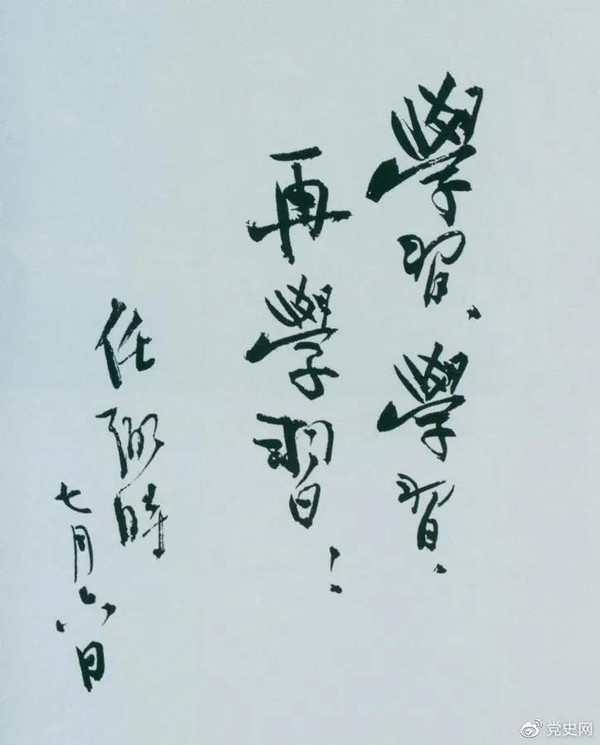 學習、學習、
再學習!
任弼時
七月六日
党史网